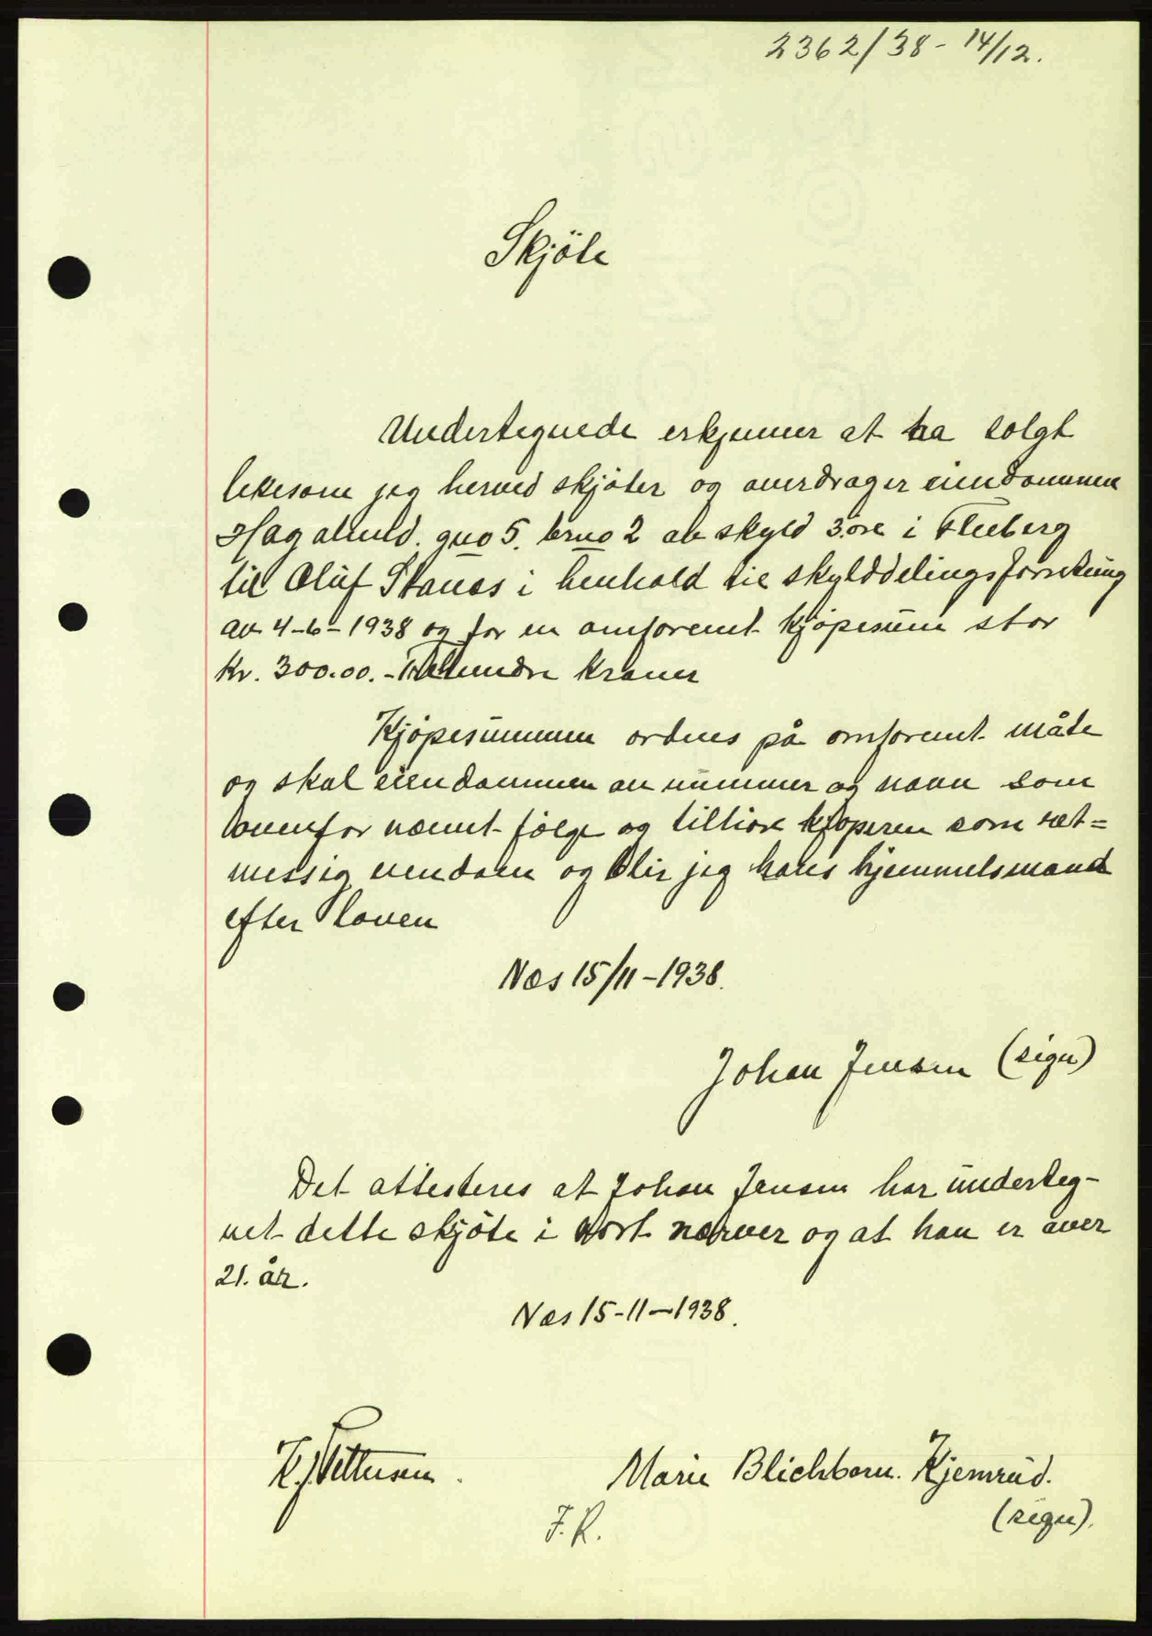 2362/38 - 14/12.
Skjöte
Undertegnede erkjenner at ha solgt
likesom jeg herved skjöter og overdrager eiendommen
Haga gno 5. brno 2 av skyld 3 öre i
til Oluf i henhold til skylddelingsforretning
av 4-6-1938 og for en omforent kjöpesum stor
Kr. 300.00.- Trehundre kroner
Kjöpesummen ordnes på omforent måte
og skal eiendommen av nummer og navn som
ovenfor nævnt fölge og tilhöre kjöperen som ret=
messig eiendom og blir jeg hans hjemmelsmand
efter loven
Nes 15/11-1938.
Johan Jensen (sign)
Det attesteres at Johan Jensen har underteg-
net dette skjöte i vort nærver og at han er over
21. år.
Nes 15-11-1938.
Marie Blichborn. Kjemrud.
(sign).
J.R.